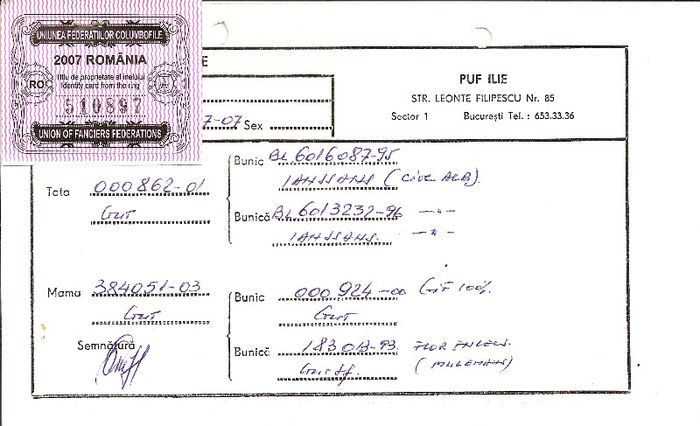 UNIUNEA FEDERATIILOR COLUMBOFILE
2007 ROMÂNIA
RO
Titlu de proprietate al inelului
Identity card from the ring
510897
UNION OF FANCIERS FEDERATIONS
E
7-07 Sex
PUF ILIE
STR. LEONTE FILIPESCU Nr. 85
Sector 1 București Tel. : 653.33.36
Tata 000862-01
Bunic BL 6016087-95
IANSSANS (CIOC ALB).
Bunică BL 6013232-96 -"-
IANSSANS. -"-
Mama 384051-03
Bunic 000924-00 100%
Semnătură
Bunică 183013-93. FLOR ENGELS